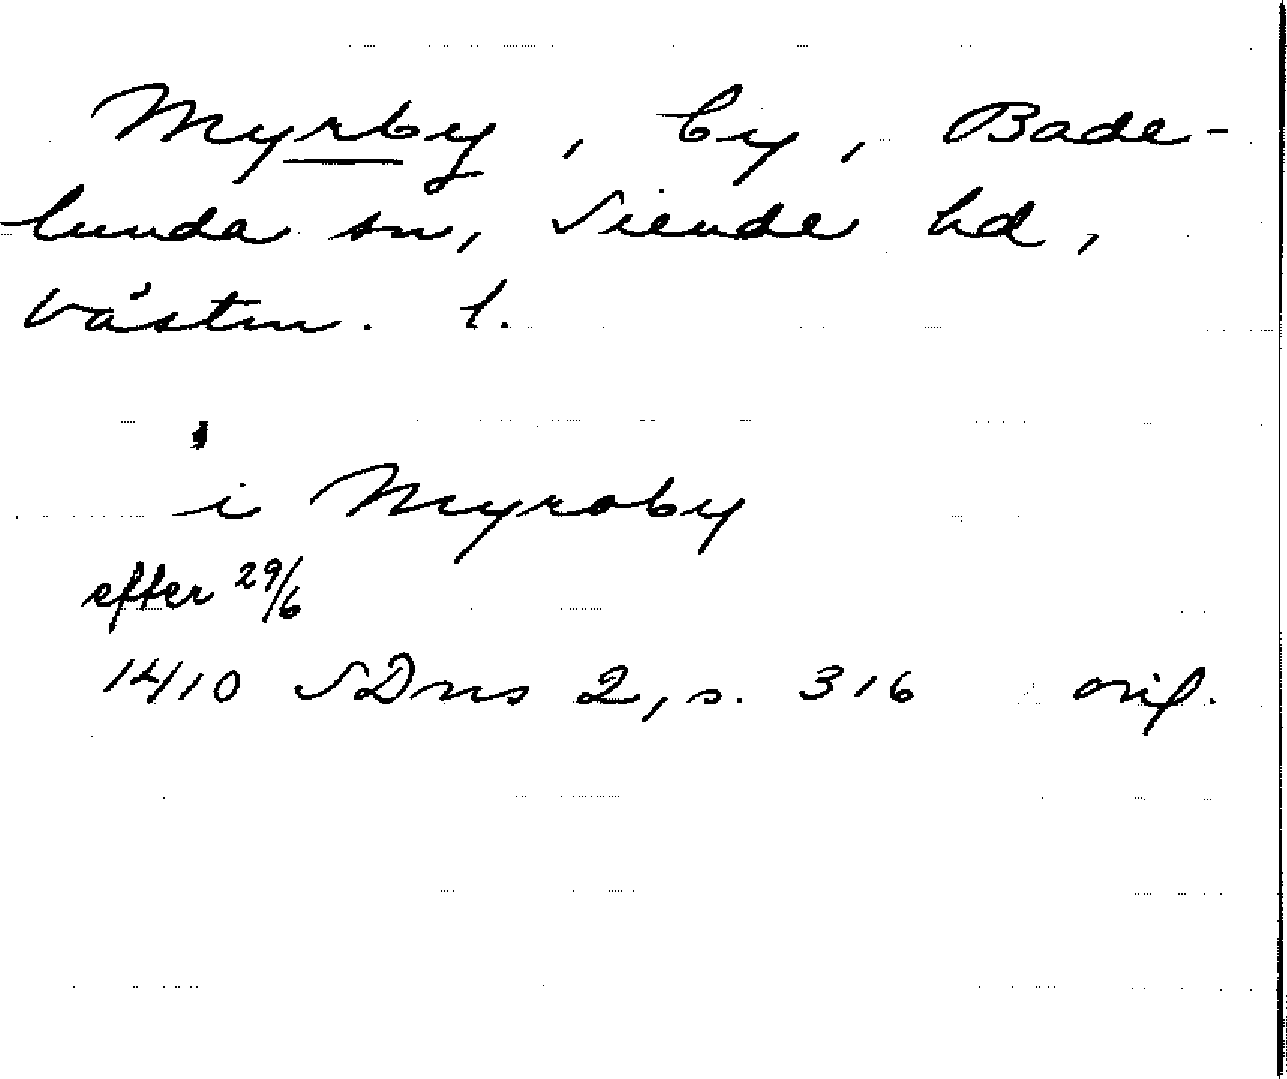 Myrby, by, Bade-
lunda sn, Siende hd,
Västm. l.
i Myroby
efter 29/6
1410 SDns 2, s. 316 orig.